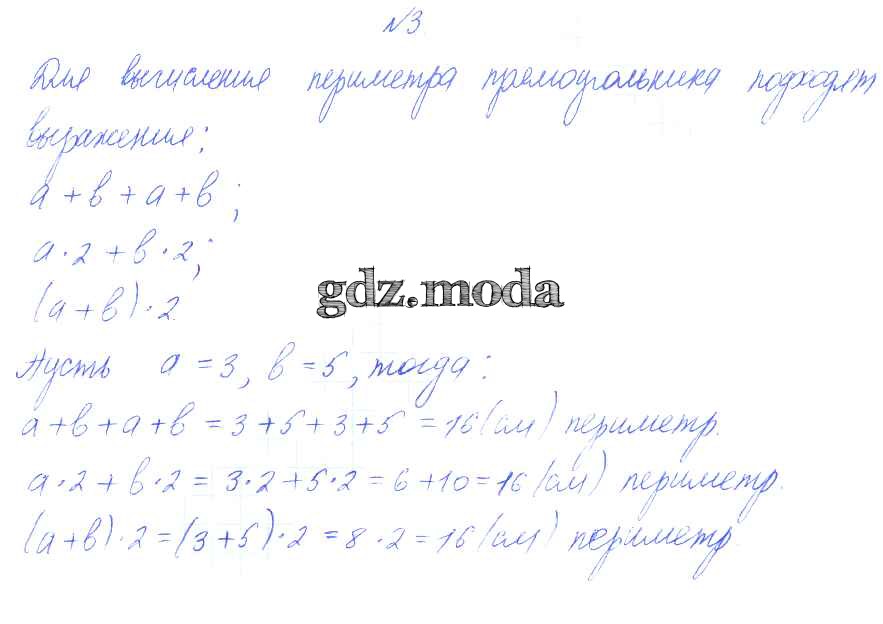 №3.
Для вычисления периметра прямоугольника подходят
выражения:
а + в + а + в;
а · 2 + в · 2;
(а + в) · 2.
gdz.moda
Пусть а = 3, в = 5, тогда:
а + в + а + в = 3 + 5 + 3 + 5 = 16 (см) периметр.
а · 2 + в · 2 = 3 · 2 + 5 · 2 = 6 + 10 = 16 (см) периметр.
(а + в) · 2 = (3 + 5) · 2 = 8 · 2 = 16 (см) периметр.